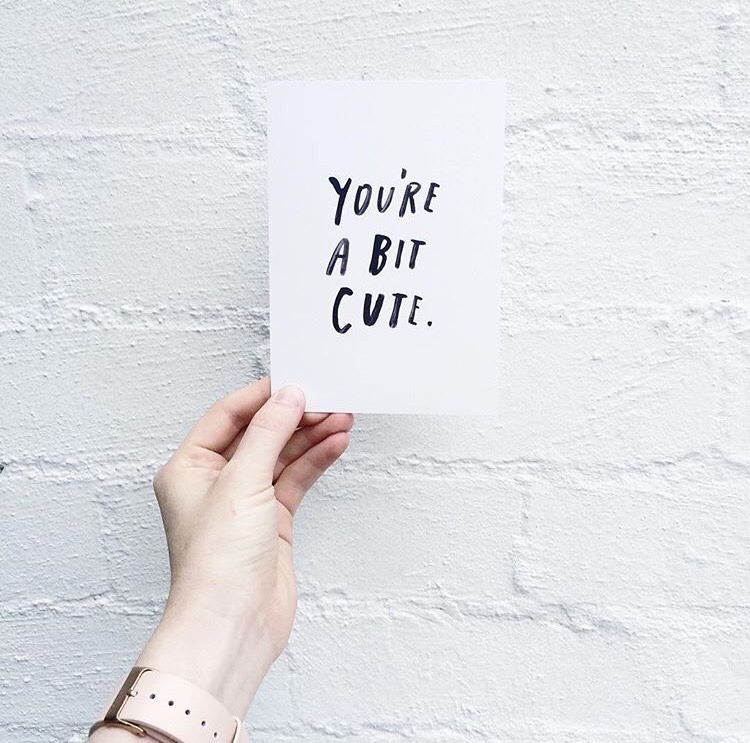 YOU'RE
A BIT
CUTE.